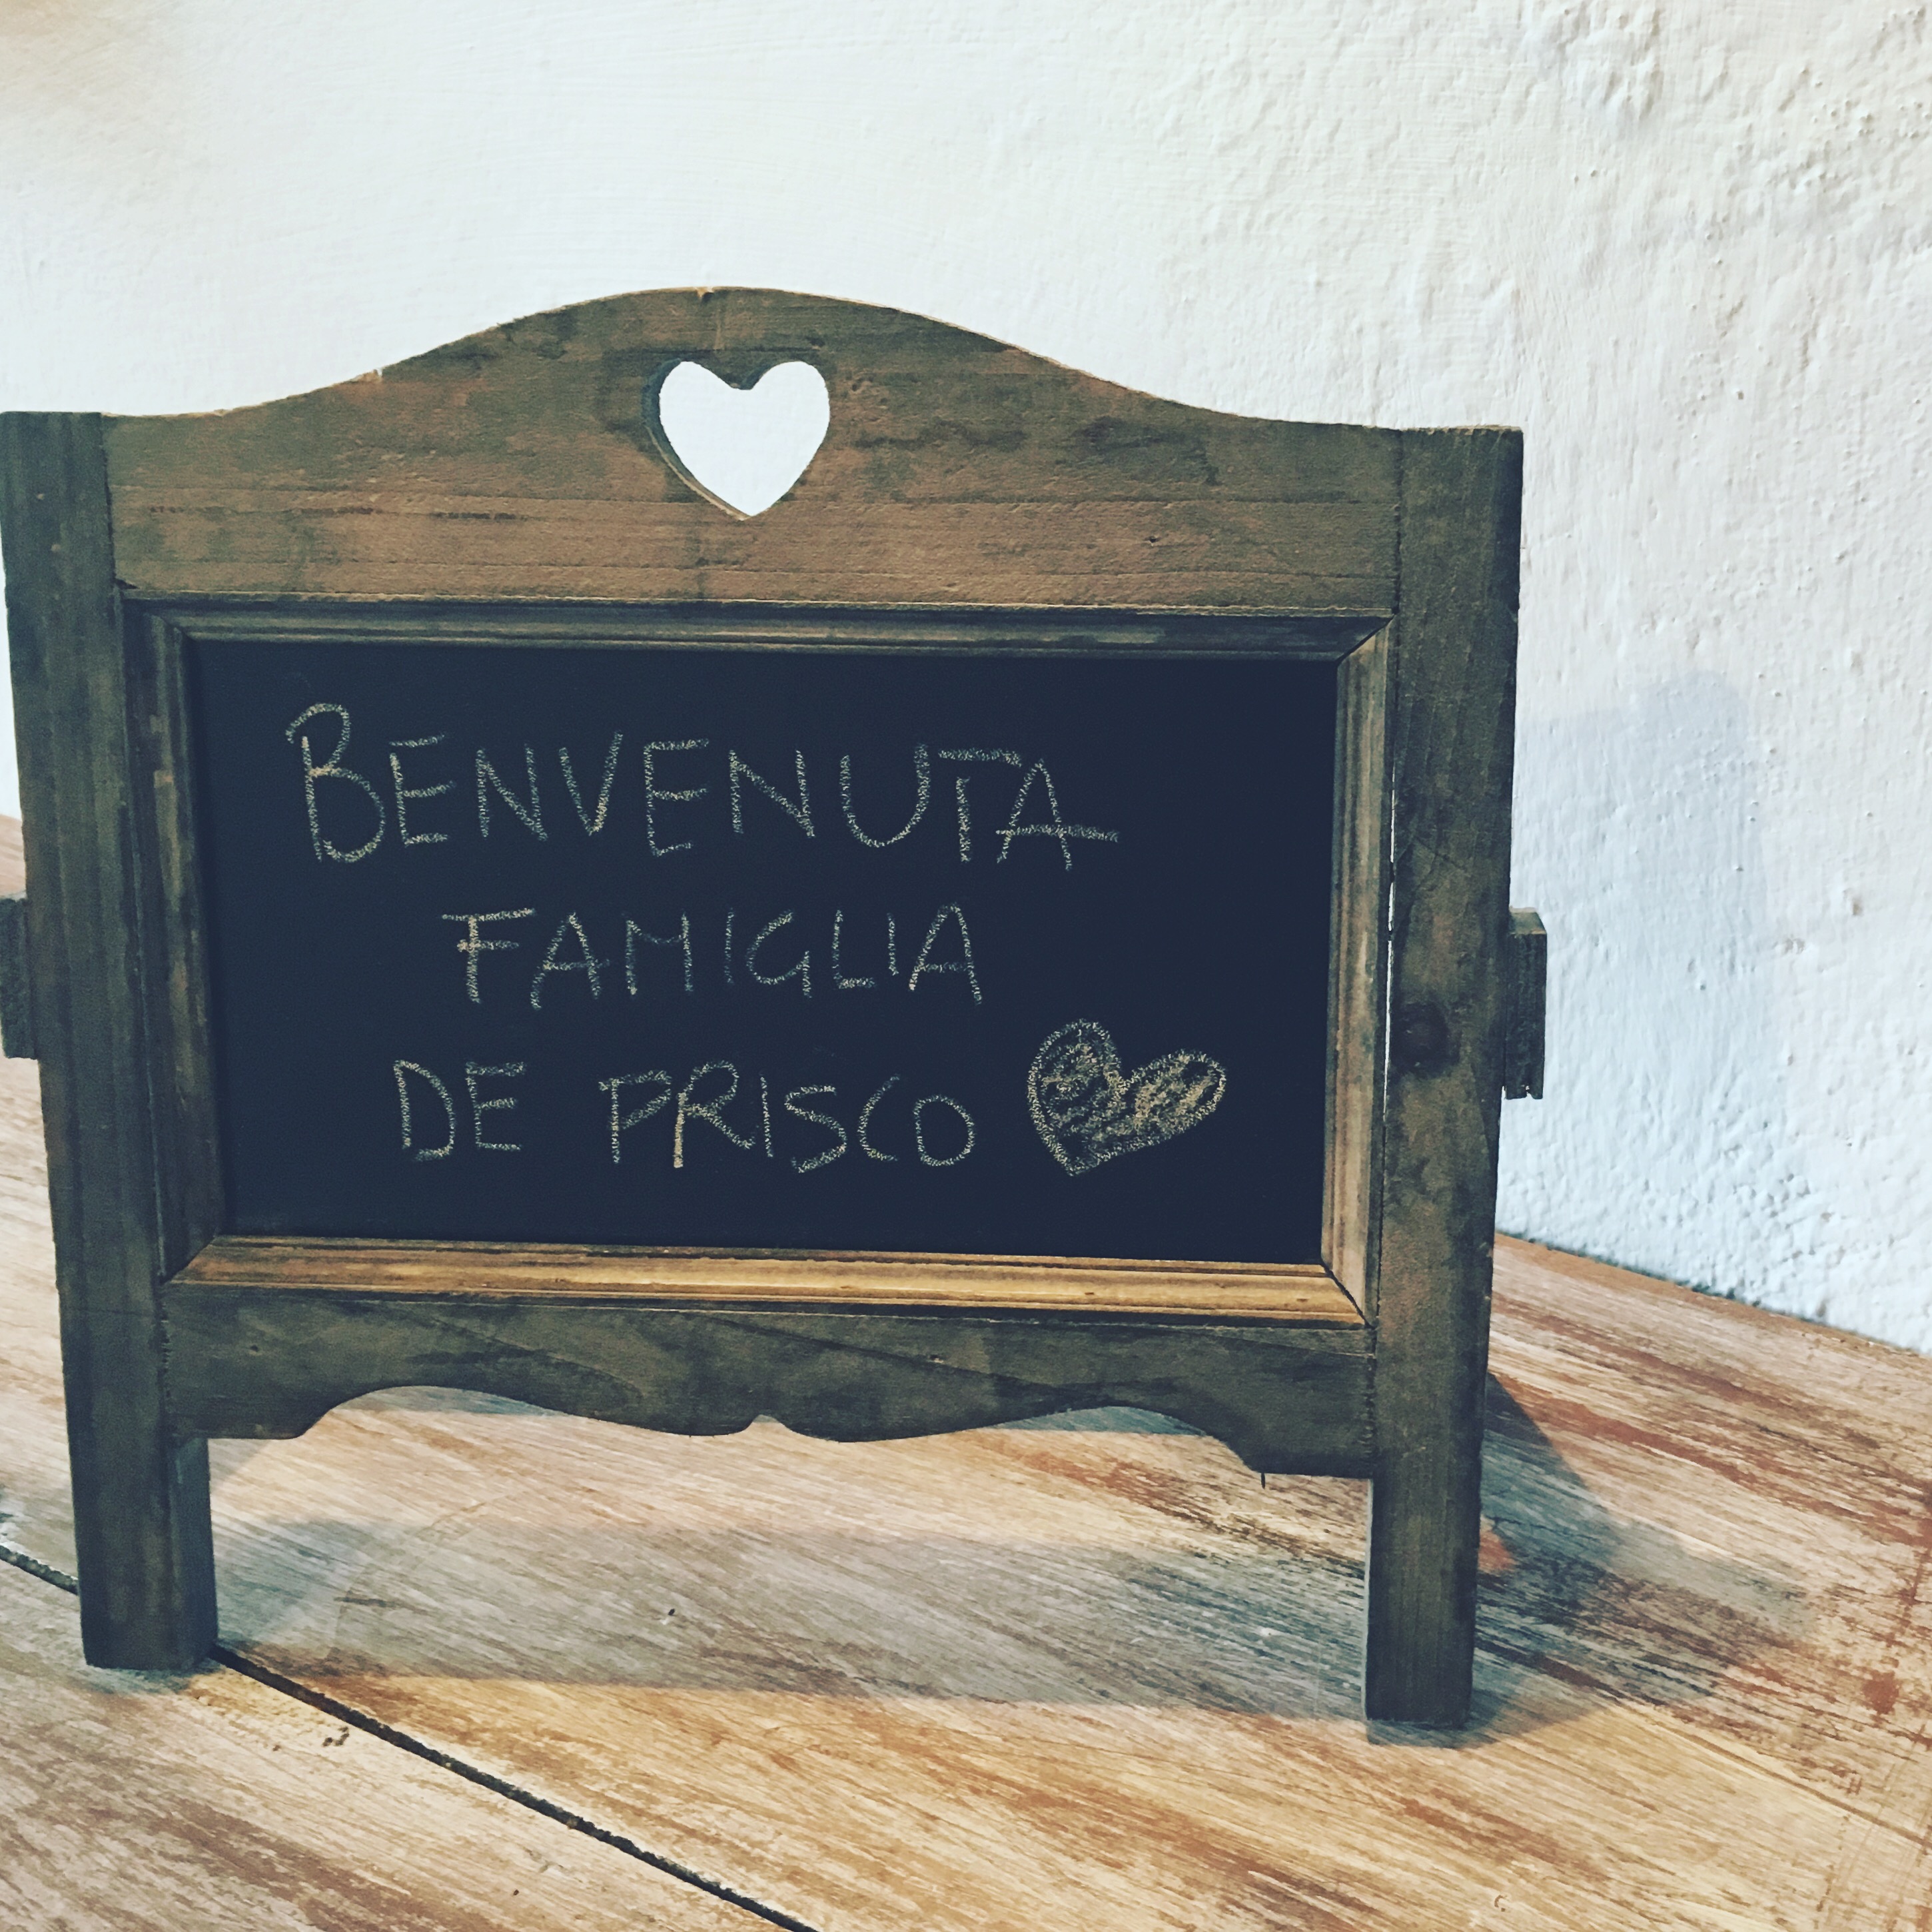 BENVENUTA
FAMIGLIA
DE PRISCO